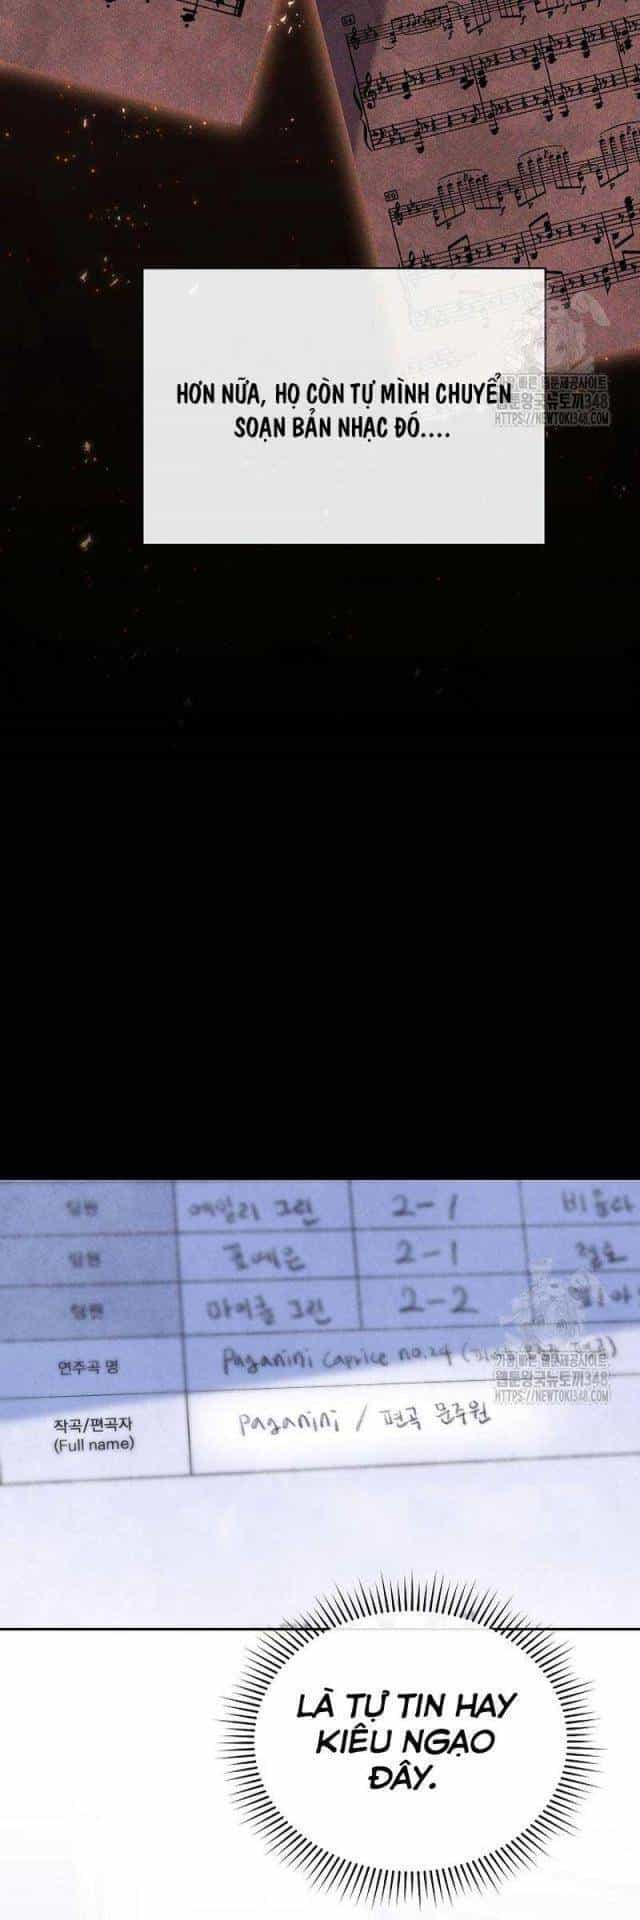 HƠN NỮA, HỌ CÒN TỰ MÌNH CHUYỂN
SOẠN BẢN NHẠC ĐÓ....
가장빠른 웹툰제공사이트
웹툰왕국뉴토끼348
HTTPS://NEWTOKI348
팀원 에밀리 그린 2-1 비올라
팀원 2-1 첼로
팀원 마이클 그린 2-2
연주곡 명 Paganini Caprice no.24
가장빠른 웹툰제공사이트
웹툰왕국뉴토끼348
HTTPS://NEWTOKI348
작곡/편곡자 Paganini / 편곡 문주원
(Full name)
LÀ TỰ TIN HAY
KIÊU NGẠO
ĐÂY.